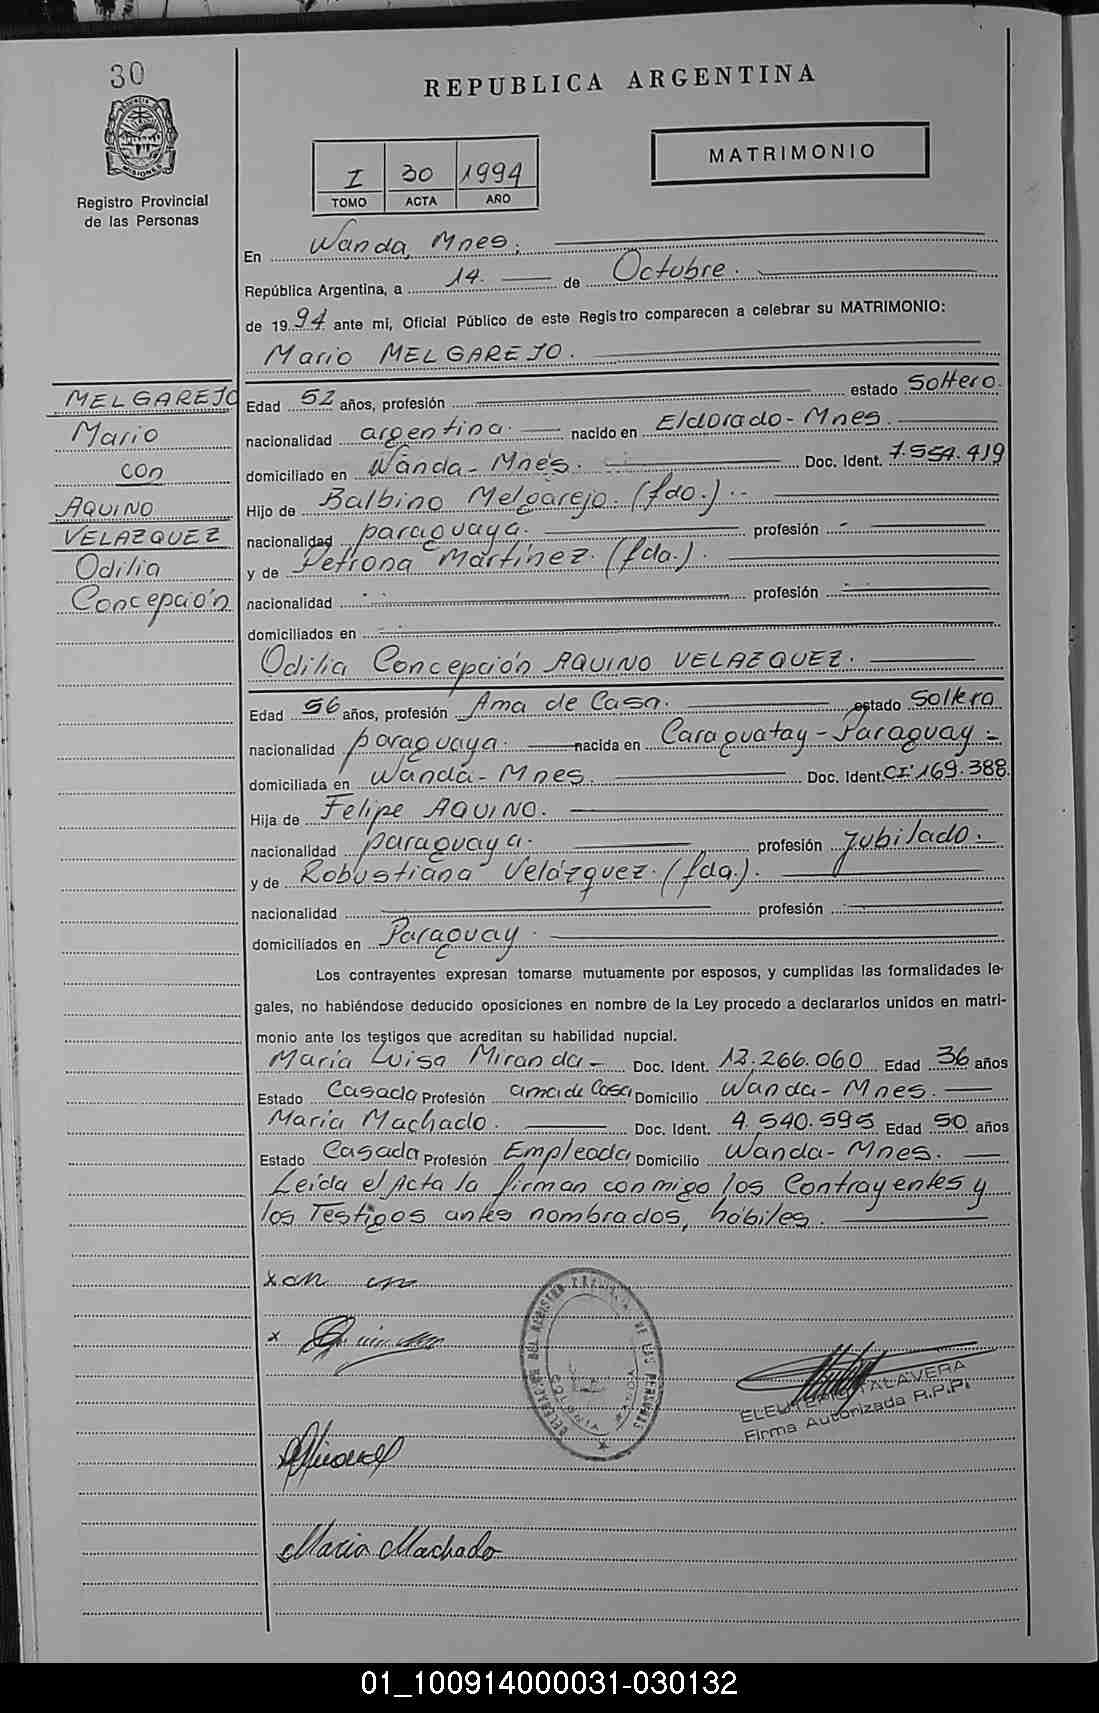 30
REPUBLICA ARGENTINA
MATRIMONIO
I 30 1994
TOMO ACTA AÑO
Registro Provincial
de las Personas
En Wanda, Mnes;
República Argentina, a 14. de Octubre.
de 1994 ante mí, Oficial Público de este Registro comparecen a celebrar su MATRIMONIO:
Mario MELGAREJO.
MELGAREJO
Mario
con
AQUINO
VELAZQUEZ
Odilia
Concepción
Edad 52 años, profesión estado Soltero.
nacionalidad argentina. nacido en Eldorado - Mnes.
domiciliado en Wanda - Mnes. Doc. Ident. 7.554.419
Hijo de Balbino Melgarejo. (fdo.)
nacionalidad paraguaya. profesión
y de Petrona Martínez. (fda.).
nacionalidad profesión
domiciliados en
Odilia Concepción AQUINO VELAZQUEZ.
Edad 56 años, profesión Ama de Casa. estado Soltera
nacionalidad paraguaya. nacida en Caraguatay - Paraguay -
domiciliada en Wanda - Mnes. Doc. Ident. CI: 169.388.
Hija de Felipe AQUINO.
nacionalidad paraguaya. profesión Jubilado.
y de Robustiana Velázquez. (fda.).
nacionalidad profesión
domiciliados en Paraguay.
Los contrayentes expresan tomarse mutuamente por esposos, y cumplidas las formalidades le-
gales, no habiéndose deducido oposiciones en nombre de la Ley procedo a declararlos unidos en matri-
monio ante los testigos que acreditan su habilidad nupcial.
María Luisa Miranda - Doc. Ident. 12.266.060 Edad 36 años
Estado Casada Profesión ama de Casa Domicilio Wanda - Mnes.
María Machado. Doc. Ident. 4.540.595 Edad 50 años
Estado Casada Profesión Empleada Domicilio Wanda - Mnes.
Leída el Acta la firman conmigo los Contrayentes y
los Testigos antes nombrados, hábiles.
ELEUTERIO TALAVERA
Firma Autorizada R.P.P.
Maria Machado
01_100914000031-030132